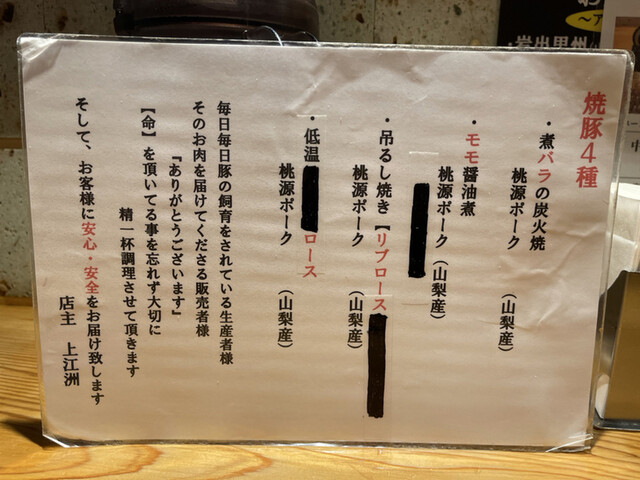 焼豚4種
・煮バラの炭火焼
桃源ポーク (山梨産)
・モモ醤油煮
桃源ポーク (山梨産)
・吊るし焼き【リブロース
桃源ポーク (山梨産)
・低温ロース
桃源ポーク (山梨産)
毎日毎日豚の飼育をされている生産者様
そのお肉を届けてくださる販売者様
『ありがとうございます』
【命】を頂いてる事を忘れず大切に
精一杯調理させて頂きます
そして、お客様に安心・安全をお届け致します
店主 上江洲